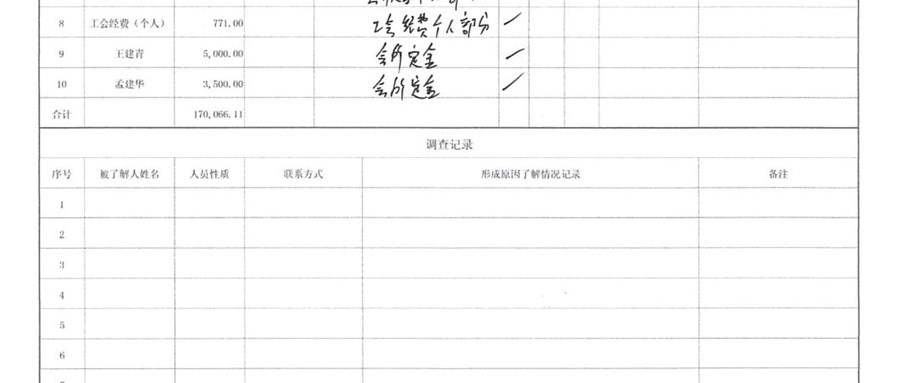 8 工会经费（个人） 771.00 工会经费个人部分
9 王建青 5,000.00 会所定金
10 孟建华 3,500.00 会所定金
合计 170,066.11
调查记录
序号 被了解人姓名 人员性质 联系方式 形成原因了解情况记录 备注
1
2
3
4
5
6